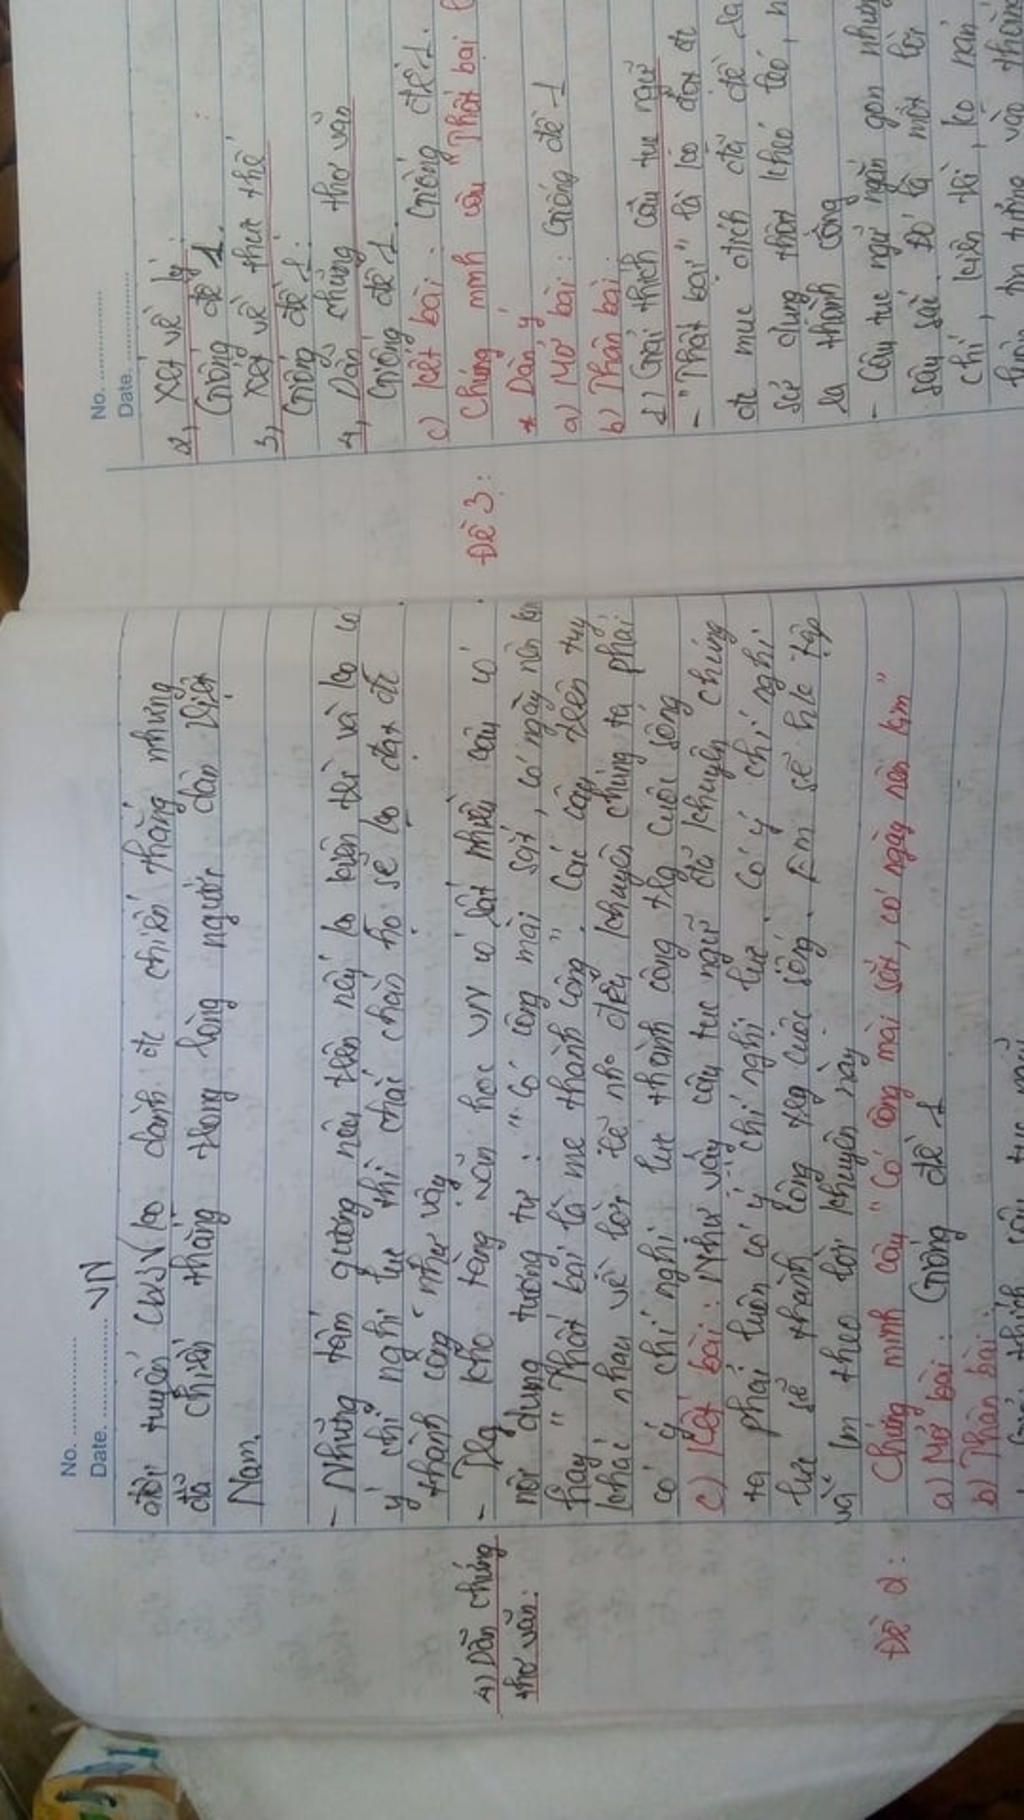 No. ............
Date. ............ VN
đội tuyển U23 VN ko dành đc chiến thắng nhưng
đã chiến thắng trong lòng người dân Việt
Nam.
- Những tấm gương nêu trên nếu ko kiên trì và ko có
ý chí nghị lực thì chắc chắn họ sẽ ko đạt đc
thành công như vậy.
4) Dẫn chứng
thơ văn:
- Trg kho tàng văn học VN có rất nhiều câu có
nội dung tương tự: "Có công mài sắt, có ngày nên kim
hay "Thất bại là mẹ thành công". Các câu trên tuy
khác nhau về lời lẽ nhg đều khuyên chúng ta phải
có ý chí nghị lực thành công trg cuộc sống
c) Kết bài: Như vậy câu tục ngữ đã khuyên chúng
ta phải luôn có ý chí nghị lực. Có ý chí nghị
lực sẽ thành công trg cuộc sống. Em sẽ h/c tập
và lm theo lời khuyên này
Đề 2:
Chứng minh câu "Có công mài sắt, có ngày nên kim"
a) Mở bài: Giống đề 1
b) Thân bài:
giải thích câu tục ngữ
No. ............
Date. ............
2, Xét về lý:
Giống đề 1.
3, Xét về thực thế:
Giống đề 1.
4, Dẫn chứng thơ văn
Giống đề 1.
c) Kết bài: Giống đề 1.
Đề 3:
Chứng minh câu "Thất bại l
* Dàn ý
a) Mở bài: Giống đề 1
b) Thân bài:
1) Giải thích câu tục ngữ
- "Thất bại" là ko đạt đc
đc mục đích đã đề ra
sử dụng thật khéo léo, n
là thành công
- Câu tục ngữ ngắn gọn nhưng
sâu sắc. Đó là một lời
chí, kiên trì, ko nản
luôn tin tưởng vào thành